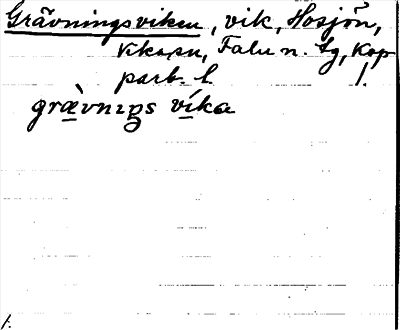 Grävningsviken, vik, Hosjön,
Vika sn, Falu n. lg, Kop
parb. l
grævnıŋs víka